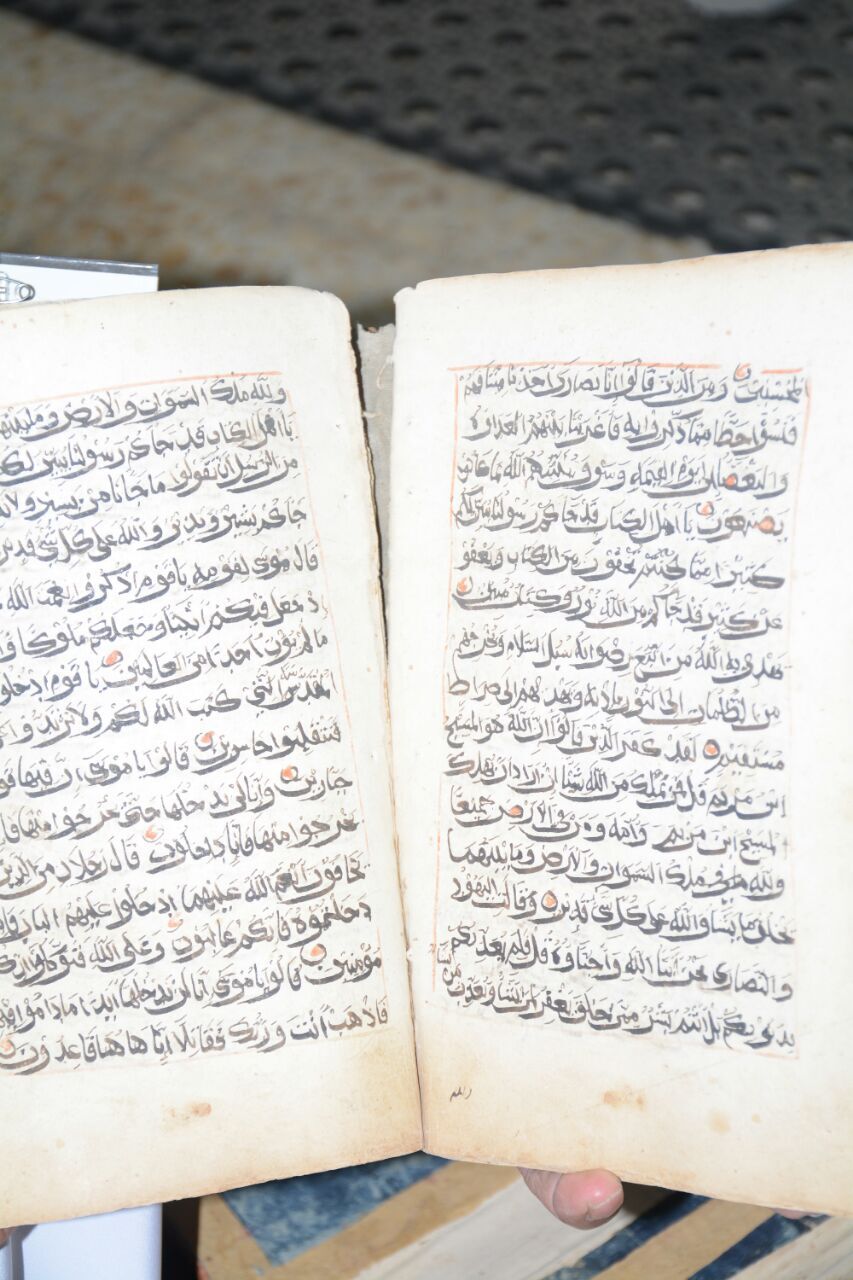 المحسنين ومن الذين قالوا انا نصارى اخذنا ميثاقهم
فنسوا حظا مما ذكروا به فاغرينا بينهم العداوة
والبغضا الى يوم القيمة وسوف ينبئهم الله بما كانوا
يصنعون يا اهل الكتاب قد جاكم رسولنا يبين لكم
كثيرا مما كنتم تخفون من الكتاب ويعفو
عن كثير قد جاكم من الله نور وكتاب مبين
يهدي به الله من اتبع رضوانه سبل السلام ويخرجهم
من الظلمات الى النور باذنه ويهديهم الى صراط
مستقيم لقد كفر الذين قالوا ان الله هو المسيح
ابن مريم قل فمن يملك من الله شيئا ان اراد ان يهلك
المسيح ابن مريم وامه ومن في الارض جميعا
ولله ملك السموات والارض وما بينهما
يخلق ما يشا والله على كل شي قدير وقالت اليهود
والنصارى نحن ابنا الله واحباوه قل فلم يعذبكم
بذنوبكم بل انتم بشر ممن خلق يغفر لمن يشا ويعذب من
يشا
ولله
ولله ملك السموات والارض وما بينهما
يا اهل الكتاب قد جاكم رسولنا يبين لكم
من الرسل ان تقولوا ما جانا من بشير ولا نذير
جاكم بشير ونذير والله على كل شي قدير
قال موسى لقومه يا قوم اذكروا نعمت الله
اذ جعل فيكم انبيا وجعلكم ملوكا
ما لم يوت احدا من العالمين يا قوم ادخلوا
المقدسة التي كتب الله لكم ولا ترتدوا
فتنقلبوا خاسرين قالوا يا موسى ان فيها
جبارين وانا لن ندخلها حتى يخرجوا منها
يخرجوا منها فانا داخلون قال رجلان من الذين
يخافون انعم الله عليهما ادخلوا عليهم الباب
دخلتموه فانكم غالبون وعلى الله فتوكلوا
مومنين قالوا يا موسى انا لن ندخلها ابدا ما داموا
فاذهب انت وربك فقاتلا انا هاهنا قاعدون